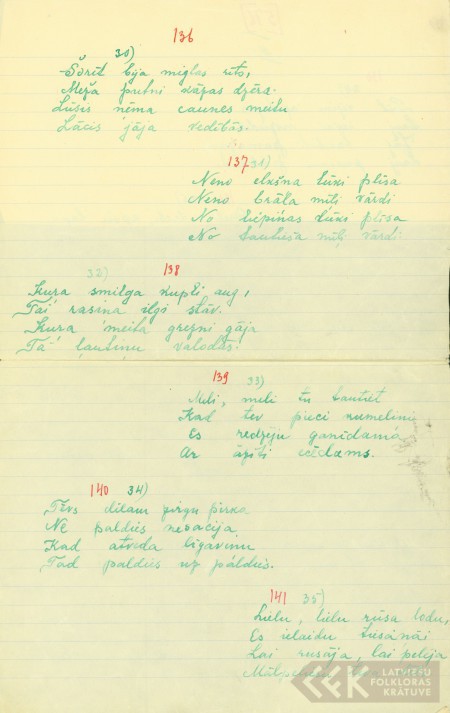 136
30)
Šorīt bija miglas rīts,
Meža putni kāzas dzēra.
Lūsis ņēma caunes meitu
Lācis jāja vedībās.
137 31)
Neno elkšņa lūki plīsa
Neno brāļa mīļi vārdi
No liepiņas lūki plīsa
No tautieša mīļi vārdi.
32) 138
Kura smilga kupli aug,
Tai rasiņa ilgi stāv.
Kura meita grezni gāja
Tā ļautiņu valodās.
139 33)
Meli, meli tu tautiet
Kad tev pieci kumeliņi
Es redzēju ganīdama
Ar āzīti ecēdams.
140 34)
Tēvs dēlam pirgu pirka
Ne paldies nesacīja
Kad atveda līgaviņu
Tad paldies uz paldies.
141 35)
Lielu, lielu rūsa lodu,
Es ielaidu
Lai rusēja, lai pelēja
LATVIEŠU
FOLKLORAS
KRĀTUVE